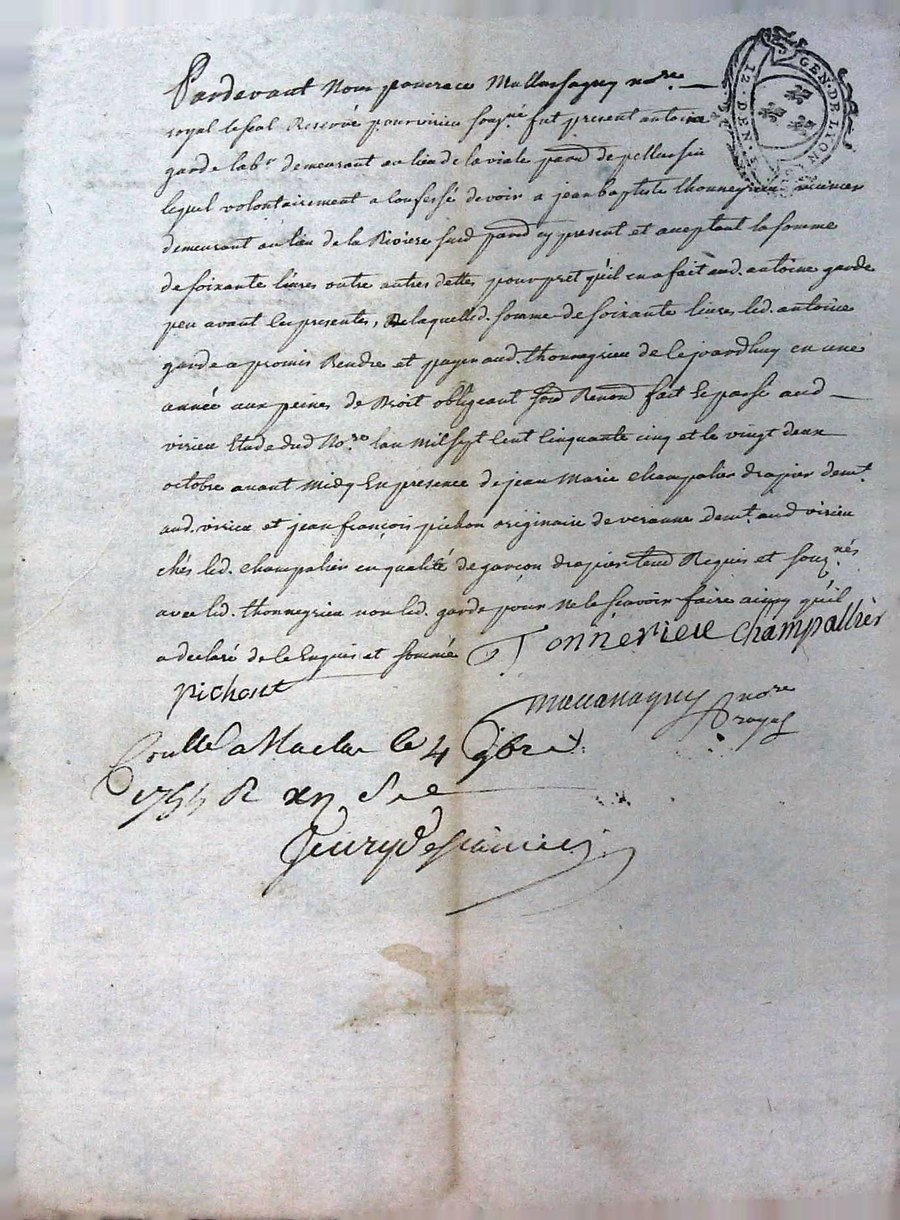 GEN. DE LYON
12. DEN.
Pardevant Nous no.re
royal le seul Reservé pour virieu soug.né fut present antoine
garde lab.r demeurant au lieu de la viale paroi. de pellussin
lequel volontairement a confessé devoir a jean baptiste thonnegrieu
demeurant au lieu de la Riviere sud. paroi. cy present et aceptant la somme
de soixante livres outre autres dettes pour pret qu'il en a fait aud. antoine garde
peu avant les presentes, laquelle d. somme de soixante livres led. antoine
garde a promis Rendre et payer aud. thonnegrieu de ce jourdhuy en une
année aux peines de Droit obligeant Renond fait et passé aud
virieu Etude dud No.re lan Mil sept Cent Cinquante Cinq et le vingt deux
octobre avant Midy En presence de jean Marie Champalier drapier dem.t
aud. virieu et jean françois pichon originaire de veranne dem.t aud virieu
chés led. Champalier en qualité de garçon drapier Requis et souz.nés
avec led. thonnegrieu non led. garde pour Ne le scavoir faire ainsy qu'il
a declaré de ce Enquis et sommé Tonnerieu Champallier
Pichont
no.re
royal
Conllé a Maclas le 4 9bre
1755 R